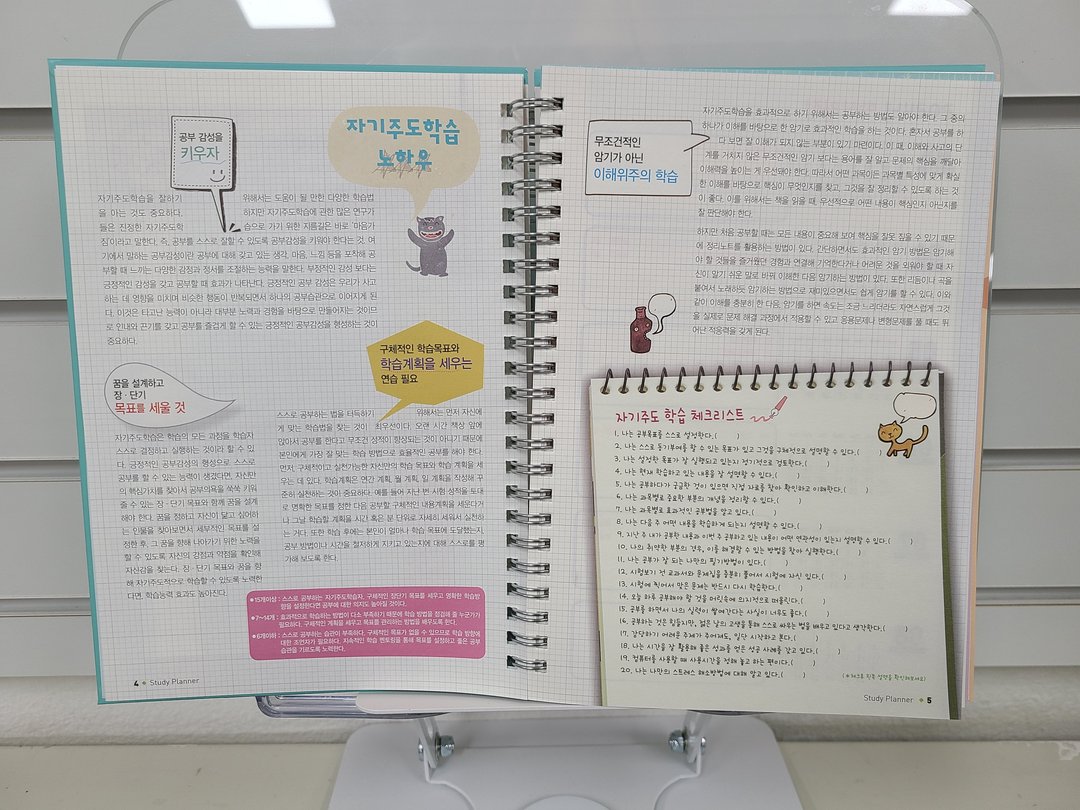 자기주도학습
노하우
공부 감성을
키우자
자기주도학습을 잘하기 위해서는 도움이 될 만한 다양한 학습법
을 아는 것도 중요하다. 하지만 자기주도학습에 관한 많은 연구가
들은 진정한 '자기주도학 습으로 가기 위한 지름길은 바로 '마음가
짐'이라고 말한다. 즉, 공부를 스스로 잘할 수 있도록 공부감성을 키워야 한다는 것. 여
기에서 말하는 공부감성이란 공부에 대해 갖고 있는 생각, 마음, 느낌 등을 포착해 공
부할 때 느끼는 다양한 감정과 정서를 조절하는 능력을 말한다. 부정적인 감성 보다는
긍정적인 감성을 갖고 공부할 때 효과가 나타난다. 긍정적인 공부 감성은 우리가 사고
하는 데 영향을 미치며 비슷한 행동이 반복되면서 하나의 공부습관으로 이어지게 된
다. 이것은 타고난 능력이 아니라 대부분 노력과 경험을 바탕으로 만들어지는 것이므
로 인내와 끈기를 갖고 공부를 즐겁게 할 수 있는 긍정적인 공부감성을 형성하는 것이
중요하다.
꿈을 설계하고
장 · 단기
목표를 세울 것
자기주도학습은 학습의 모든 과정을 학습자
스스로 결정하고 실행하는 것이라 할 수 있
다. 긍정적인 공부감성의 형성으로 스스로
공부를 할 수 있는 능력이 생겼다면, 자신만
의 핵심가치를 찾아서 공부의욕을 쑥쑥 키워
줄 수 있는 장 · 단기 목표와 함께 꿈을 설계
해야 한다. 꿈을 정하고 자신이 닮고 싶어하
는 인물을 찾아보면서 세부적인 목표를 설
정한 후, 그 꿈을 향해 나아가기 위한 노력을
할 수 있도록 자신의 강점과 약점을 확인해
자신감을 찾는다. 장 · 단기 목표와 꿈을 향
해 자기주도적으로 학습할 수 있도록 노력한
다면, 학습능력 효과도 높아진다.
구체적인 학습목표와
학습계획을 세우는
연습 필요
스스로 공부하는 법을 터득하기 위해서는 먼저 자신에
게 맞는 학습법을 찾는 것이 최우선이다. 오랜 시간 책상 앞에
앉아서 공부를 한다고 무조건 성적이 향상되는 것이 아니기 때문에
본인에게 가장 잘 맞는 학습 방법으로 효율적인 공부를 해야 한다.
먼저, 구체적이고 실천가능한 자신만의 학습 목표와 학습 계획을 세
우는 데 있다. 학습계획은 연간 계획, 월 계획, 일 계획을 작성해 꾸
준히 실천하는 것이 중요하다. 예를 들어 지난 번 시험 성적을 토대
로 명확한 목표를 정한 다음 공부할 구체적인 내용계획을 세운다거
나 그날 학습할 계획을 시간 혹은 분 단위로 자세히 세워서 실천하
는 거다. 또한 학습 후에는 본인이 얼마나 학습 목표에 도달했는지,
공부 방법이나 시간을 철저하게 지키고 있는지에 대해 스스로를 평
가해 보도록 한다.
• 15개이상 : 스스로 공부하는 자기주도학습자, 구체적인 장단기 목표를 세우고 명확한 학습방
향을 설정한다면 공부에 대한 의지도 높아질 것이다.
• 7~14개 : 효과적으로 학습하는 방법이 다소 부족하기 때문에 학습 방법을 점검해 줄 누군가가
필요하다. 구체적인 계획을 세우고 목표를 관리하는 방법을 배우도록 한다.
• 6개이하 : 스스로 공부하는 습관이 부족하다. 구체적인 목표가 없을 수 있으므로 학습 방향에
대한 조언자가 필요하다. 지속적인 학습 멘토링을 통해 목표를 설정하고 좋은 공부
습관을 기르도록 노력한다.
4 Study Planner
무조건적인
암기가 아닌
이해위주의 학습
자기주도학습을 효과적으로 하기 위해서는 공부하는 방법도 알아야 한다. 그 중의
하나가 이해를 바탕으로 한 암기로 효과적인 학습을 하는 것이다. 혼자서 공부를 하
다 보면 잘 이해가 되지 않는 부분이 있기 마련이다. 이 때, 이해와 사고의 단
계를 거치지 않은 무조건적인 암기 보다는 용어를 잘 알고 문제의 핵심을 깨달아
이해력을 높이는 게 우선돼야 한다. 따라서 어떤 과목이든 과목별 특성에 맞게 확실
한 이해를 바탕으로 핵심이 무엇인지를 찾고, 그것을 잘 정리할 수 있도록 하는 것
이 좋다. 이를 위해서는 책을 읽을 때, 우선적으로 어떤 내용이 핵심인지 아닌지를
잘 판단해야 한다.
하지만 처음 공부할 때는 모든 내용이 중요해 보여 핵심을 잘못 짚을 수 있기 때문
에 정리노트를 활용하는 방법이 있다. 간단하면서도 효과적인 암기 방법은 암기해
야 할 것들을 즐거웠던 경험과 연결해 기억한다거나 어려운 것을 외워야 할 때 자
신이 알기 쉬운 말로 바꿔 이해한 다음 암기하는 방법이 있다. 또한 리듬이나 곡을
붙여서 노래하듯 암기하는 방법으로 재미있으면서도 쉽게 암기를 할 수 있다. 이와
같이 이해를 충분히 한 다음, 암기를 하면 속도는 조금 느리더라도 자연스럽게 그것
을 실제로 문제 해결 과정에서 적용할 수 있고 응용문제나 변형문제를 풀 때도 뛰
어난 적응력을 갖게 된다.
자기주도 학습 체크리스트
1. 나는 공부목표를 스스로 설정한다.( )
2. 나는 스스로 동기부여를 할 수 있는 목표가 있고 그것을 구체적으로 설명할 수 있다.( )
3. 나는 설정한 목표가 잘 실행되고 있는지 정기적으로 검토한다.( )
4. 나는 현재 학습하고 있는 내용을 잘 설명할 수 있다.( )
5. 나는 공부하다가 궁금한 것이 있으면 직접 자료를 찾아 확인하고 이해한다.( )
6. 나는 과목별로 중요한 부분의 개념을 정리할 수 있다.( )
7. 나는 과목별로 효과적인 공부법을 알고 있다.( )
8. 나는 다음 주 어떤 내용을 학습하게 되는지 설명할 수 있다.( )
9. 지난 주 내가 공부한 내용과 이번 주 공부하고 있는 내용이 어떤 연관성이 있는지 설명할 수 있다.( )
10. 나의 취약한 부분의 경우, 이를 해결할 수 있는 방법을 찾아 실행한다.( )
11. 나는 공부가 잘 되는 나만의 필기방법이 있다.( )
12. 시험보기 전 교과서와 문제집을 충분히 풀어서 시험에 자신 있다.( )
13. 시험에 찍어서 맞은 문제는 반드시 다시 학습한다.( )
14. 오늘 하루 공부해야 할 것을 머릿속에 의지적으로 떠올린다.( )
15. 공부를 하면서 나의 실력이 쌓여간다는 사실이 너무도 좋다.( )
16. 공부하는 것은 힘들지만, 젊은 날의 고생을 통해 스스로 싸우는 법을 배우고 있다고 생각한다.( )
17. 감당하기 어려운 주제가 주어져도, 일단 시작하고 본다.( )
18. 나는 시간을 잘 활용해 좋은 성과를 얻은 성공 사례를 갖고 있다.( )
19. 컴퓨터를 사용할 때 사용시간을 정해 놓고 하는 편이다.( )
20. 나는 나만의 스트레스 해소방법에 대해 알고 있다.( )
Study Planner 5